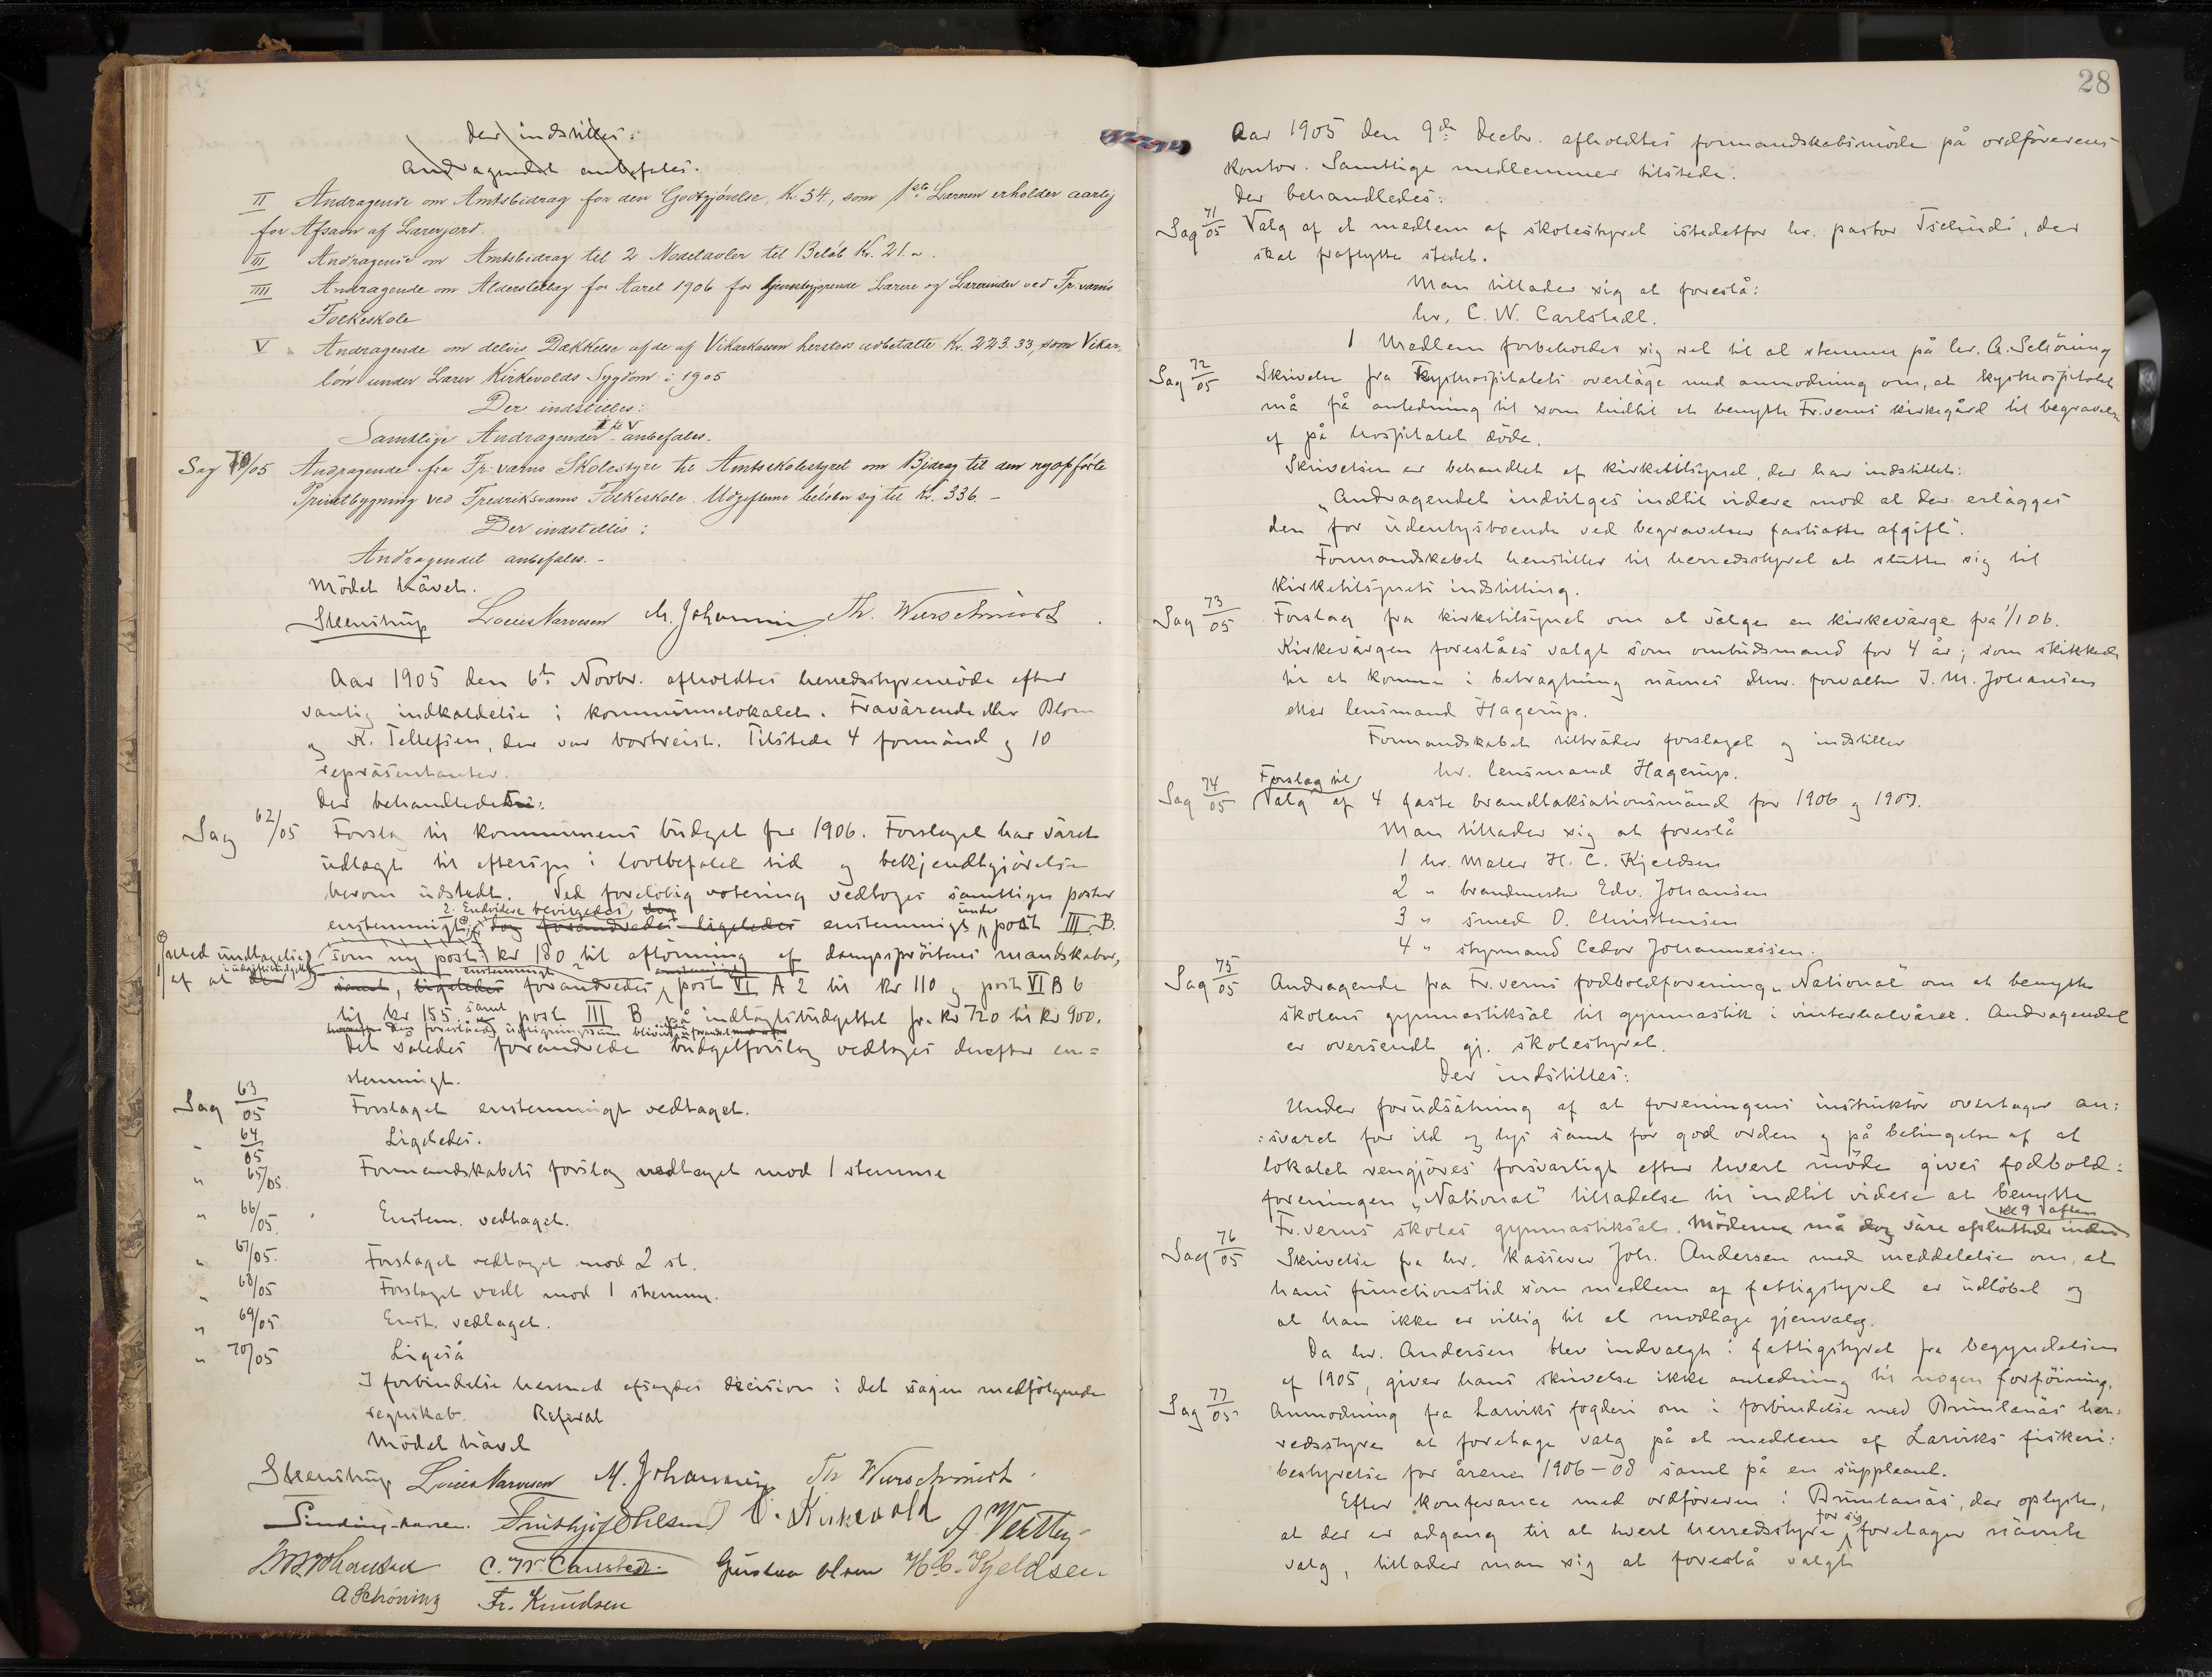 Der indstilles:
Andragendet anbefales.
II Andragende om Amtsbidrag for den Godtgjörelse, Kr. 54, som 1ste Læreren erholder aarlig
for Afsavn af Lærerjord.
III Andragende om Amtsbidrag til 2 Nodetavler til Belöb Kr. 21.
IIII Andragende om Alderstillæg for Aaret 1906 for tjenestegjörende Lærere og Lærerinder ved Fr.værns
Folkeskole
V Andragende om delvis Dækkelse af de af Vikarkassen hersteds udbetalte Kr. 223.33, som Vikar-
lön under Lærer Kirkevolds Sygdom i 1905
Der indstilles:
Samtlige Andragender II til V anbefales.
Sag 70/05 Andragende fra Fr. værns Skolestyre til Amtsskolestyret om Bidrag til den nyopförte
Privetbygning ved Fredriksværns Folkeskole. Udgifterne belöber sig til Kr. 336.-
Der indstilles:
Andragendet anbefales.-
Mödet hävet.
Steenstrup Louis Narvesen M. Johannesen Th. Wurschmidt
Aar 1905 den 6te Novbr. afholdtes herredsstyremöde efter
vanlig indkaldelse i kommunelokalet. Fraværende d'hrr Blom
og K. Tellefsen, der var bortreist. Tilstede 4 formænd og 10
repräsentanter.
Der behandledes:
Sag 62/05 Forslag til kommunens budget for 1906. Forslaget har väret
udlagt til eftersyn i lovbefalet tid og bekjendtgjörelse
herom udstedt. Ved forelöbig votering vedtoges samtlige poster
2. Endvidere bevilgedes dog under
enstemmigt dog forandredes ligeledes enstemmigt post III. B.
som ny post: kr 180 til aflönning af dampspröitens mandskaber,
(med undtagelse
af at der i udgiftsbudgettet enstemmigt enstemmigt
samt, ligeledes forandredes post VI A 2 til kr 110 og post VI B 6
til kr 155 samt post III B på indtägtsbudgettet fra kr 720 til kr 900.
Det således forandrede budgetforslag vedtoges derefter en=
stemmigt.
Sag 63/05 Forslaget enstemmigt vedtaget.
" 64/05 Ligeledes.
" 65/05. Formandskabets forslag vedtaget mod 1 stemme
" 66/05. Enstem. vedtaget.
" 67/05. Forslaget vedtaget mod 2 st.
" 68/05 Forslaget vedt mod 1 stemme.
" 69/05 Enst. vedtaget.
" 70/05 Ligeså
I forbindelse hermed afsagdes decision i det sagen medfölgende
regnskab. Referat
Mödet hävet
Steenstrup Louis Narvesen M. Johannesen Th Wurschmidt
Sinding-Larsen. Fridthjof Ohlsen O. Kirkevold A. Vettby
C. W. Carlstedt. Gustav Olsen H. C. Kjeldsen
A Schöning Fr. Knudsen
28
Aar 1905 den 9de Decbr. afholdtes formandskabsmöde på ordförerens
kontor. Samtlige medlemmer tilstede.
Der behandledes:
Sag 71/05 Valg af et medlem af skolestyret istedetfor hr. pastor Tschudi, der
skal fraflytte stedet.
Man tillader sig at foreslå:
hr. C. W. Carlstedt.
1 Medlem forbeholder sig ret til at stemme på hr. A. Schöning
Sag 72/05 Skrivelse fra Kysthospitalets overläge med anmodning om, at kysthospitalet
må få anledning til som hidtil at benytte Fr.verns kirkegård til begravelse
af på hospitalet döde.
Skrivelsen er behandlet af kirketilsynet, der har indstillet:
„Andragendet indvilges indtil videre mod at der erlägges
den for udenbysboende ved begravelser fastsatte afgift".
Formandskabet henstiller til herredsstyret at slutte sig til
kirketilsynets indstilling.
Sag 73/05 Forslag fra kirketilsynet om at välge en kirkeværge fra 1/1 06.
Kirkevärgen foreslåes valgt som ombudsmand for 4 år; som skikkede
til at komme i betragtning nävnes dhrr. forvalter J. M. Johansen
eller lensmand Hagerup.
Formandskabet tilträder forslaget og indstiller
hr. lensmand Hagerup.
Sag 74/05 Forslag til Valg af 4 faste brandtaksationsmänd for 1906 og 1907.
Man tillader sig at foreslå
1 hr. Maler H. C. Kjeldsen
2 " brandmester Edv. Johansen
3 " smed O. Christensen
4 " styrmand Cedor Johannessen.
Sag 75/05 Andragende fra Fr.verns fodboldforening „National" om at benytte
skolens gymnastiksal til gymnastik i vinterhalvåret. Andragendet
er oversendt gj. skolestyret.
Der indstilles:
Under forudsätning af at foreningens instruktör overtager an=
=svaret for ild og lys samt for god orden og på betingelse af at
lokalet rengjöres forsvarligt efter hvert möde gives fodbold=
foreningen „National" tilladelse til indtil videre at benytte
Fr.verns skoles gymnastiksal. Möderne må dog väre afsluttede inden kl 9 aften
Sag 76/05 Skrivelse fra hr. kasserer Joh. Andersen med meddelelse om, at
hans functionstid som medlem af fattigstyret er udlöbet og
at han ikke er villig til at modtage gjenvalg.
Da hr. Andersen blev indvalgt i fattigstyret fra begyndelsen
af 1905, giver hans skrivelse ikke anledning til nogen forföining.
Sag 77/05 Anmodning fra Larviks fogderi om i forbindelse med Brunlanäs her=
redsstyre at foretage valg på et medlem af Larviks fiskeri=
bestyrelse for årene 1906-08 samt på en suppleant.
Efter konferance med ordföreren i Brunlanäs, der oplyste,
at der er adgang til at hvert herredsstyre for sig foretager nävnte
valg, tillader man sig at foreslå valgt